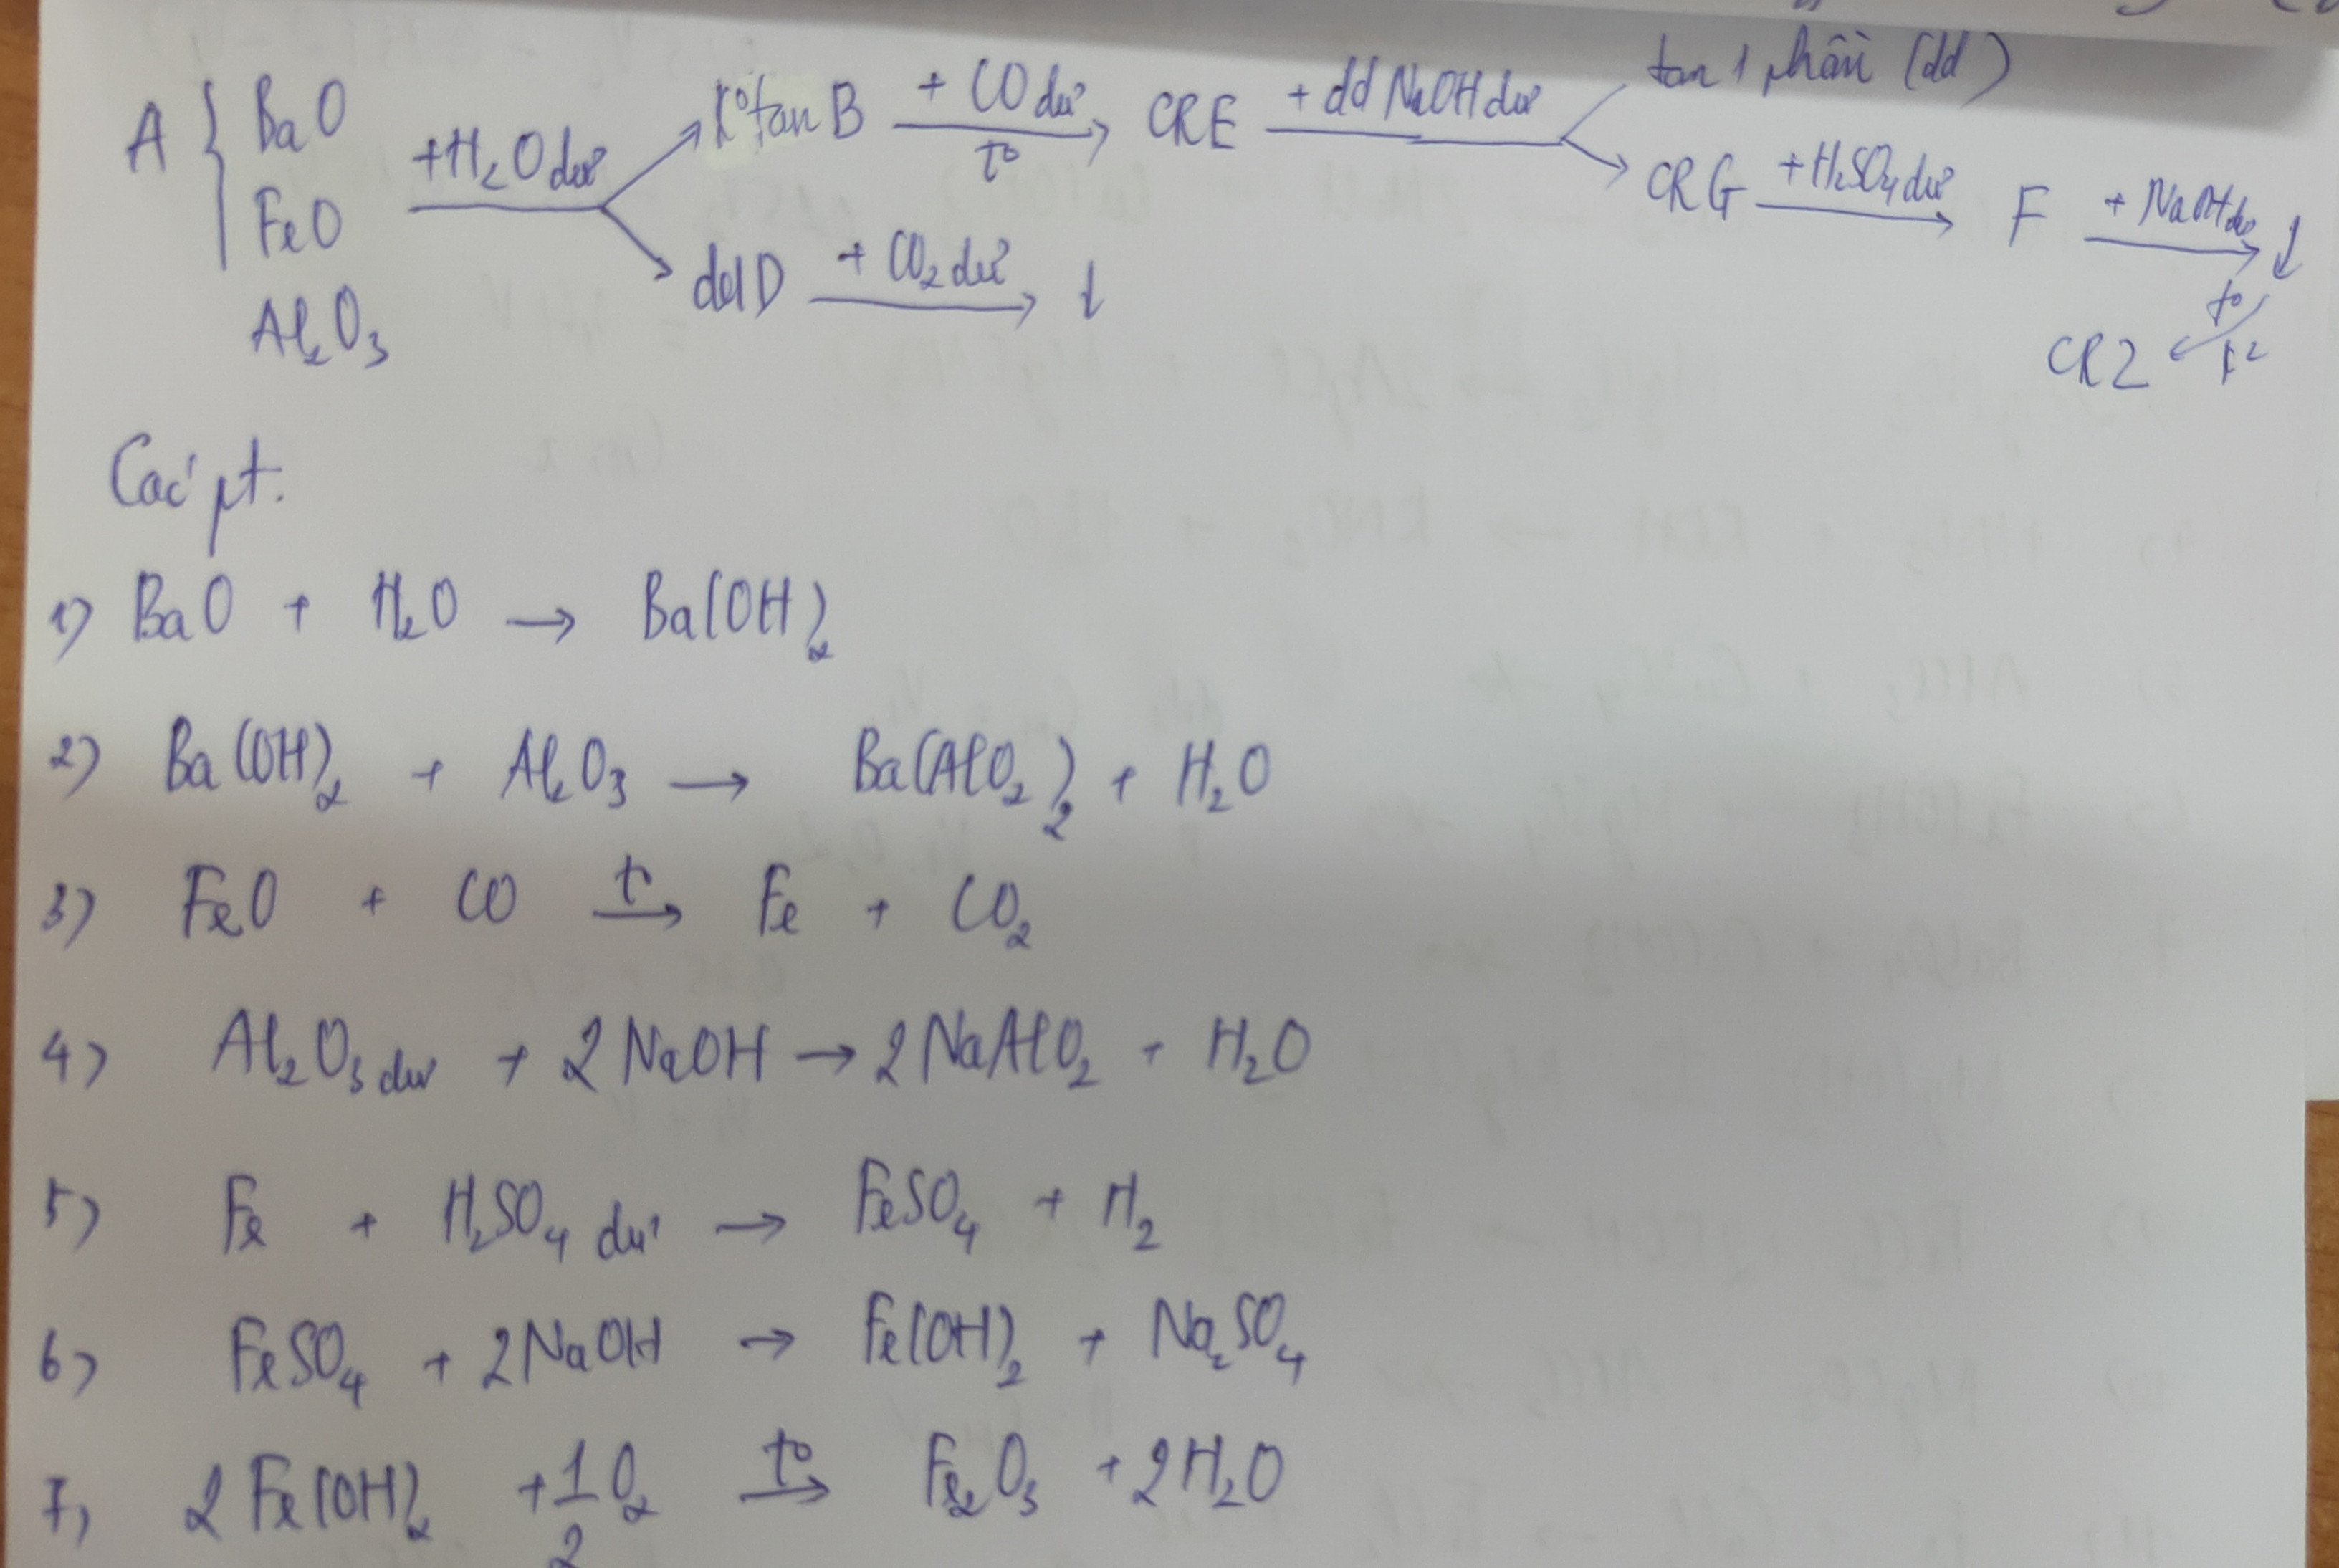 tan 1 phần (dd)
A { BaO FeO Al₂O₃ +H₂O dư
K° tan B + CO dư t° → CRE + dd NaOH dư
CRG +H₂SO₄ dư → F + NaOH dư → ↓
ddD + CO₂ dư → ↓
t°
CRZ
Các pt.
1) BaO + H₂O → Ba(OH)₂
2) Ba(OH)₂ + Al₂O₃ → Ba(AlO₂)₂ + H₂O
3) FeO + CO t° → Fe + CO₂
4) Al₂O₃ dư + 2NaOH → 2NaAlO₂ + H₂O
5) Fe + H₂SO₄ dư → FeSO₄ + H₂
6) FeSO₄ + 2NaOH → Fe(OH)₂ + Na₂SO₄
7) 2Fe(OH)₂ + 1/2 O₂ t° → Fe₂O₃ + 2H₂O